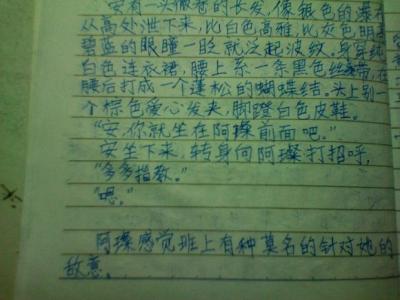 安有一头微卷的长发，像银色的瀑布
从高处泄下来，比白色高雅，比灰色明
碧蓝的眼瞳一眨就泛起波纹。身穿纯
白色连衣裙，腰上系一条黑色丝带，在
腰后打成一个蓬松的蝴蝶结。头上别一
个棕色爱心发夹，脚蹬白色皮鞋。
“安，你就坐在阿璨前面吧。”
安坐下来，转身向阿璨打招呼，
“多多指教。”
“嗯。”
阿璨感觉班上有种莫名的针对她的
敌意。